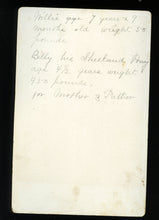 Willie age 7 years & 9
months old weight 50
pounds
Billy his Shetland Pony
age 4½ years weight
450 pounds.
for Mother & Father